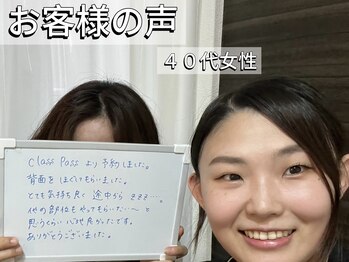 お客様の声
40代女性
Class Passより予約しました。
背面をほぐしてもらいました。
とても気持ち良く途中からzzz…。
他の部位もやってもらいたい〜と
思うくらい心地良かったです。
ありがとうございました。